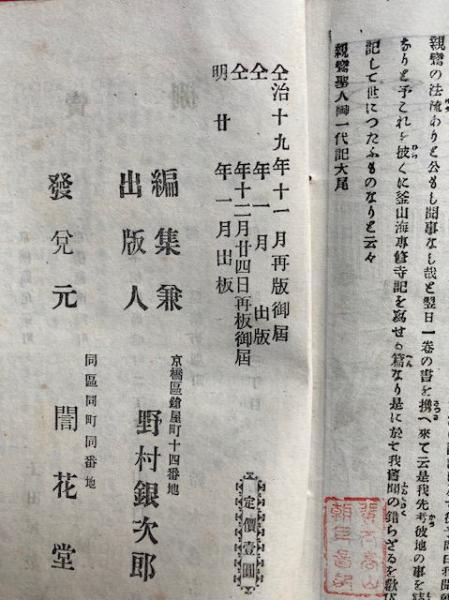 親鸞の法流ありと公もし閑事なし哉と翌日一巻の書を携へ來て云是我先考彼地の事を
なりと予これを披くに釜山海専修寺記を寫せる篇なり是に於て我舊聞の錯らざるを歡び
記して世につたふものなりと云々
親鸞聖人御一代記大尾
仝治十九年十一月再版御屆
仝 年一月 出版
仝 年十二月廿四日再板御屆
明廿 年一月出板
定價壹圓
編集兼
出版人
京橋區鎗屋町十四番地
野村銀次郎
同區同町同番地
發兌元 誾花堂